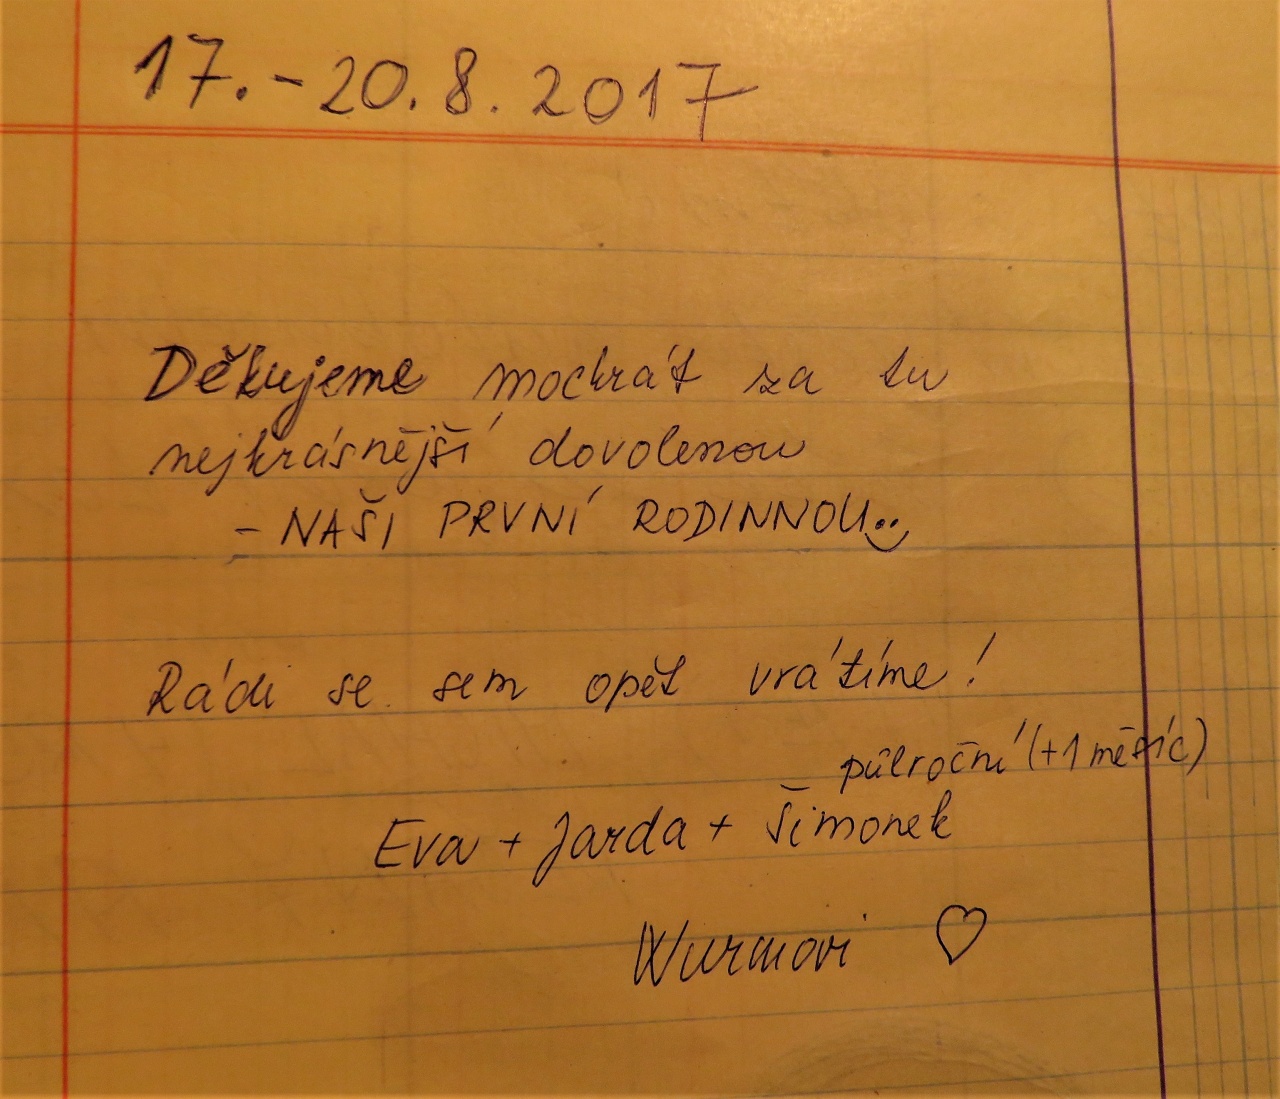 17.-20.8.2017
Děkujeme mockrát za tu
nejkrásnější dovolenou
- NAŠI PRVNÍ RODINNOU
Rádi se sem opět vrátíme!
půlroční (+1 měsíc)
Eva + Jarda + Šimonek
Wurmovi